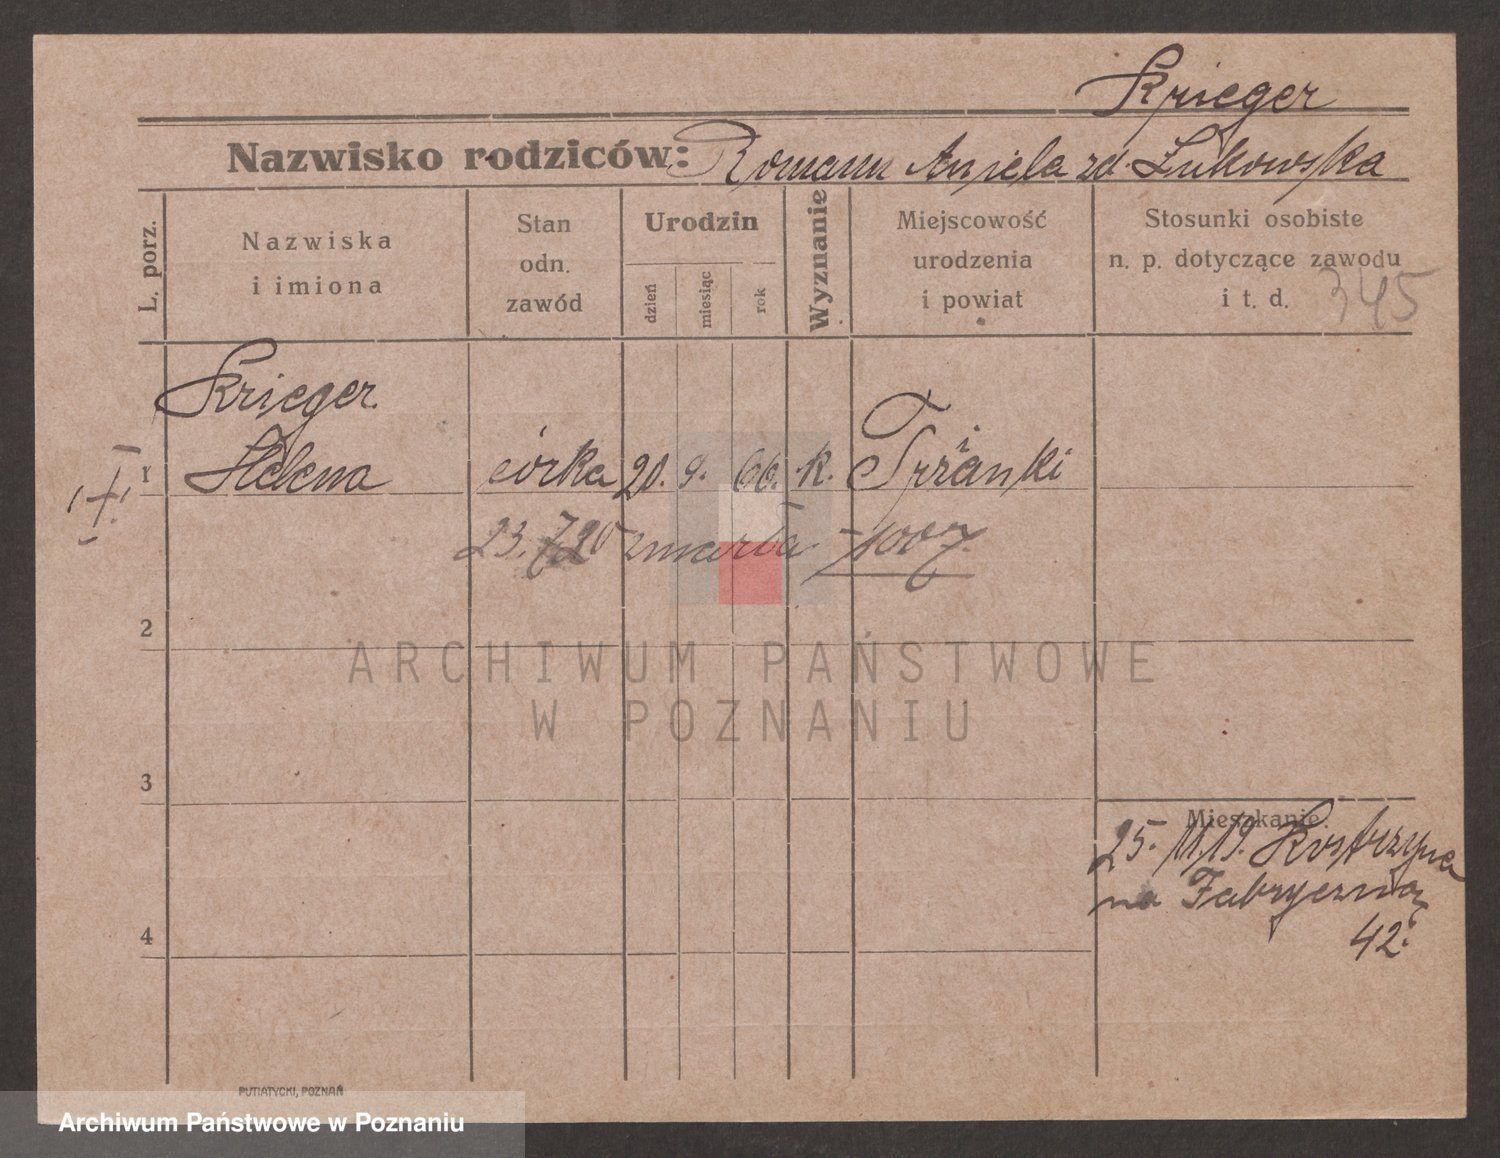 Krieger
Nazwisko rodziców: Romann Aniela zd. Lukowska
L. porz.
Nazwiska
i imiona
Stan
odn.
zawód
Urodzin
dzień
miesiąc
rok
Wyznanie
Miejscowość
urodzenia
i powiat
Stosunki osobiste
n. p. dotyczące zawodu
i t. d.
345
Krieger
1 Helena córka 20. 9. 66. k.
23. 7 20 zmarła 1007.
2
ARCHIWUM PAŃSTWOWE
W POZNANIU
3
Mieszkanie.
25. 11.19. Kostrzyna
na Fabryczną
42.
4
PUTIATYCKI, POZNAŃ
Archiwum Państwowe w Poznaniu